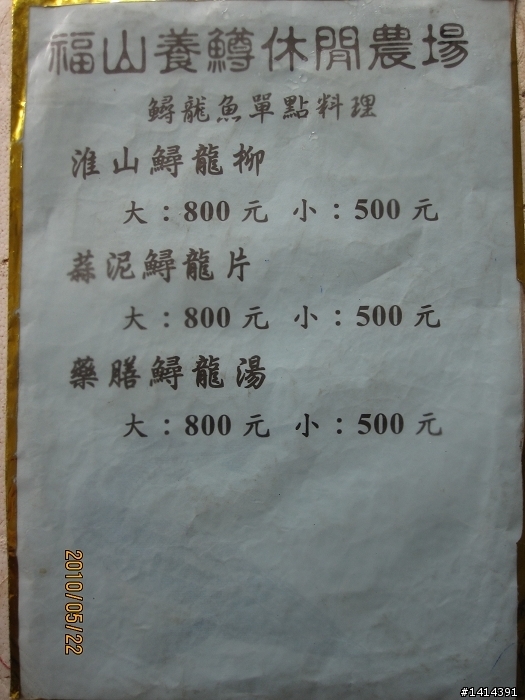 福山養鱒休閒農場
鱘龍魚單點料理
淮山鱘龍柳
大：800 元 小：500 元
蒜泥鱘龍片
大：800 元 小：500 元
藥膳鱘龍湯
大：800 元 小：500 元
2010/05/22
#1414391